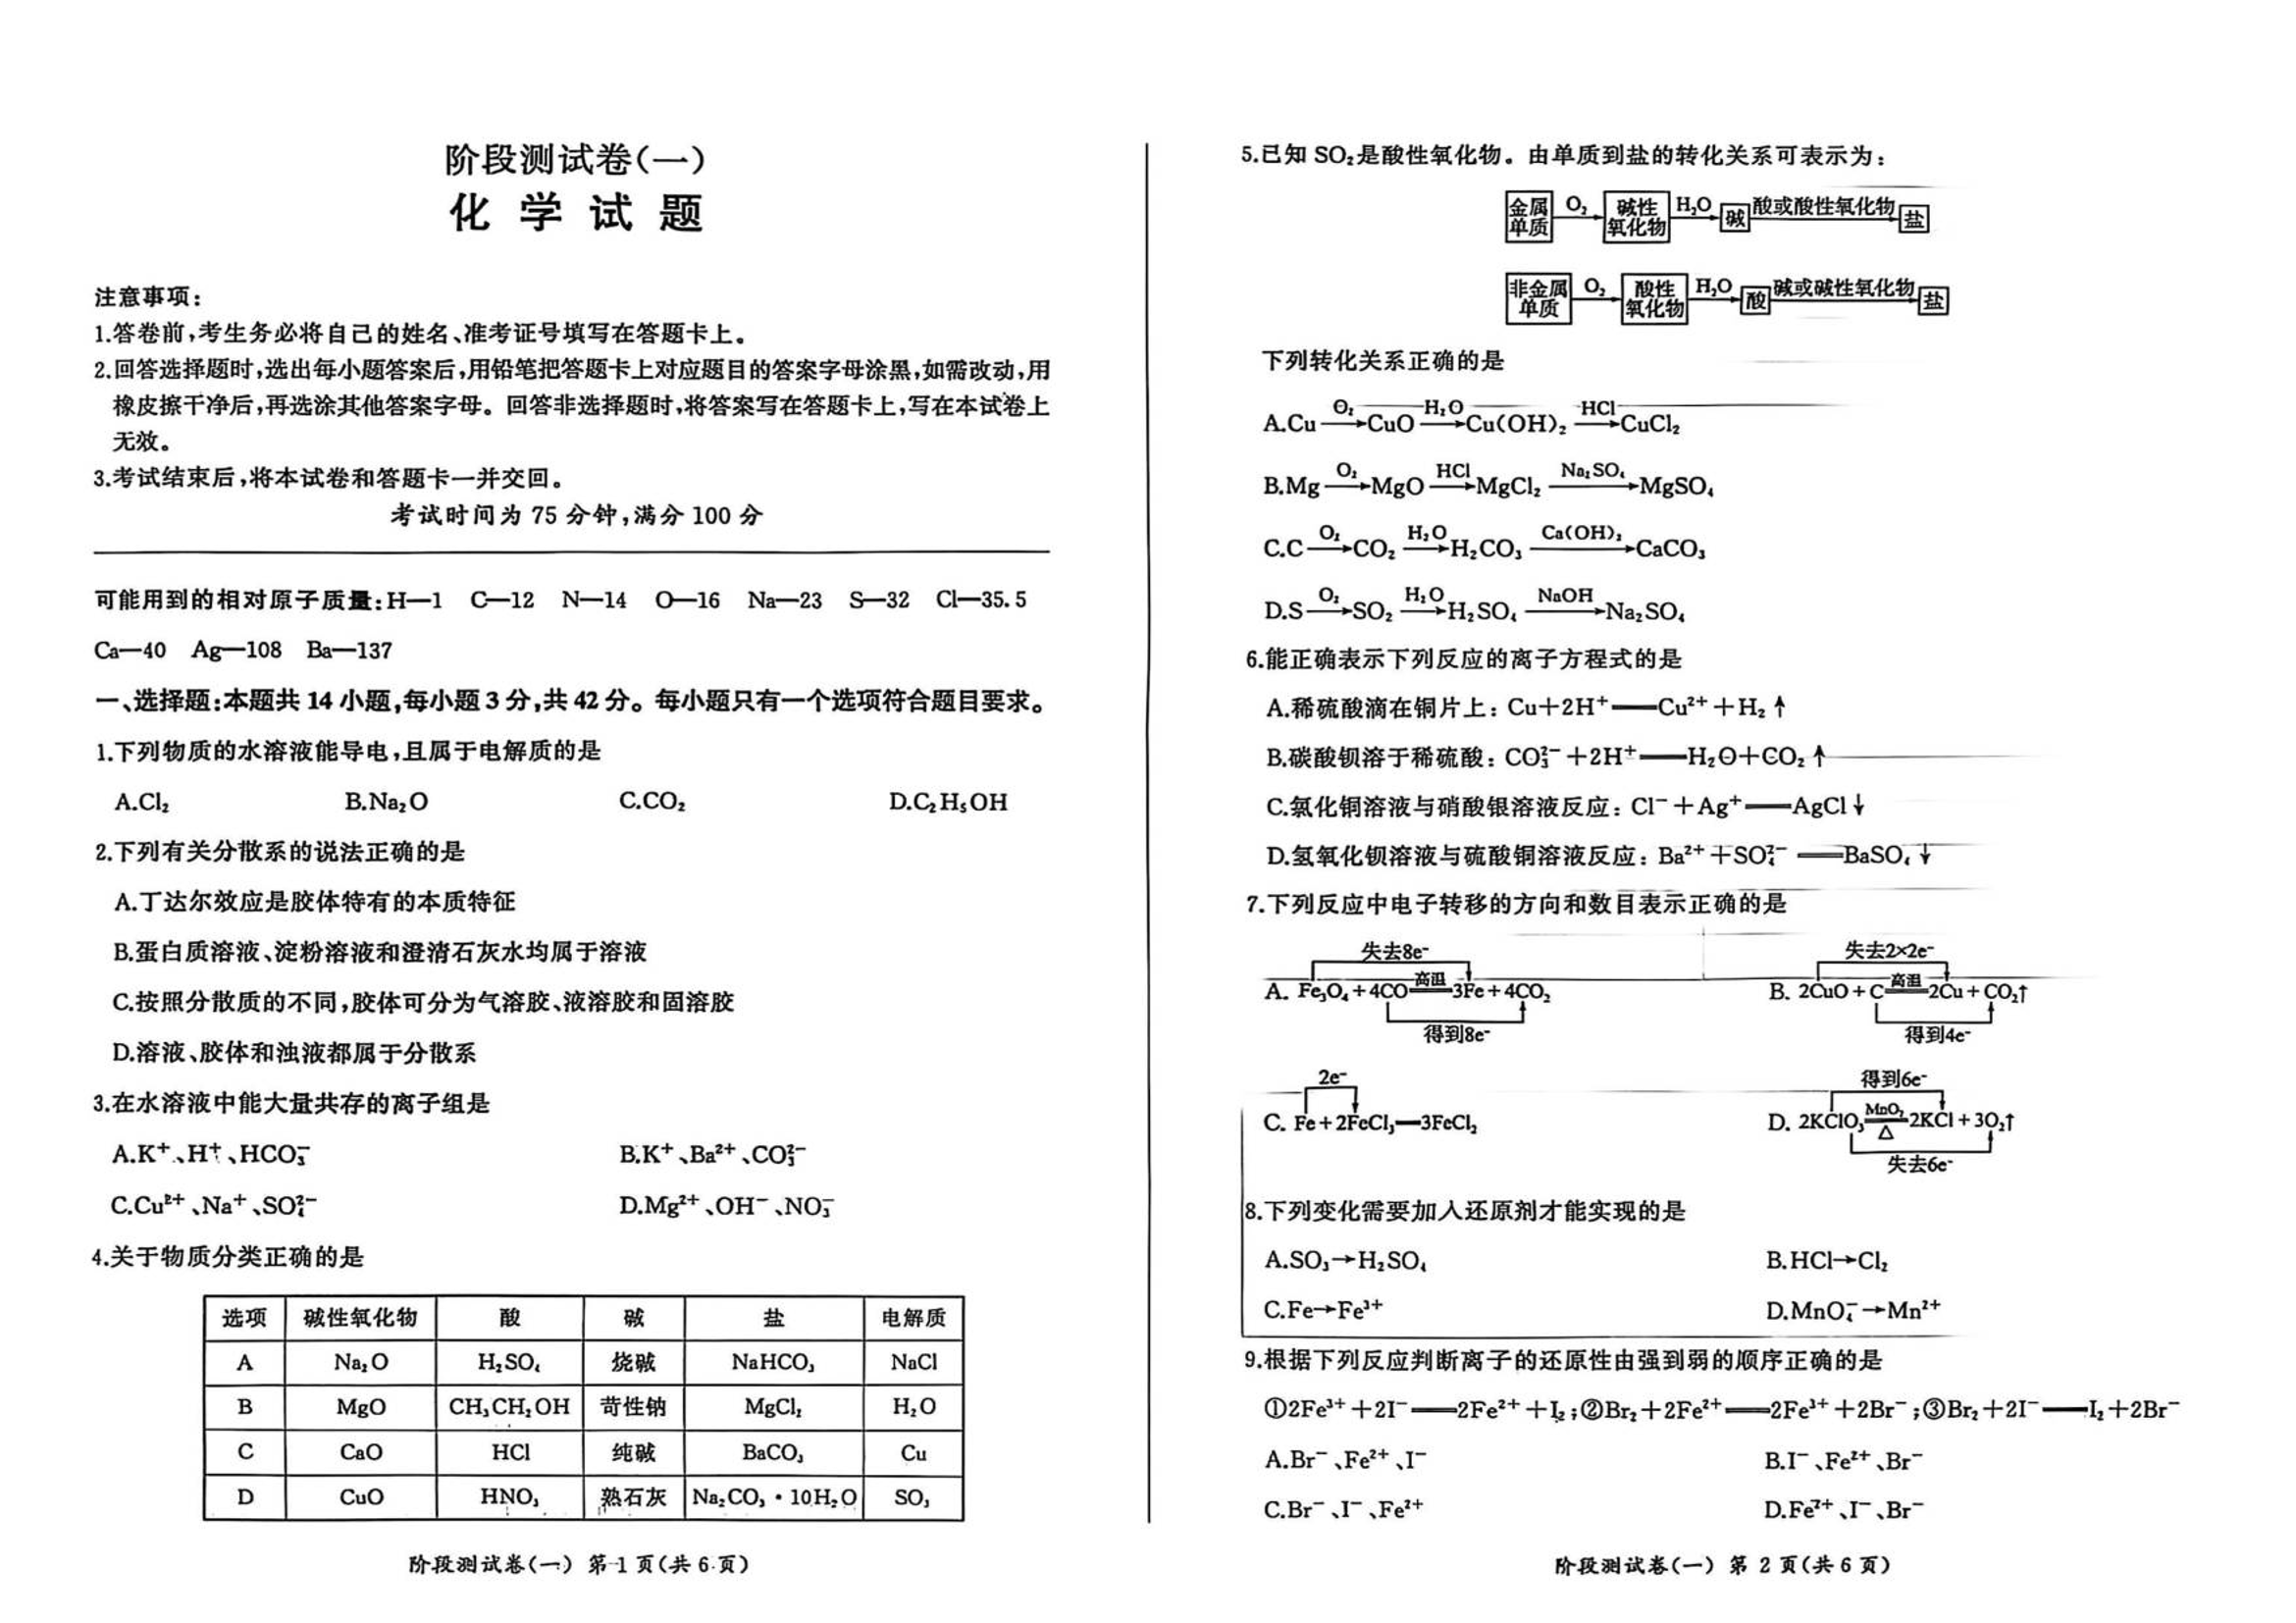 阶段测试卷(一)
化学试题
注意事项:
1.答卷前,考生务必将自己的姓名、准考证号填写在答题卡上。
2.回答选择题时,选出每小题答案后,用铅笔把答题卡上对应题目的答案字母涂黑,如需改动,用
橡皮擦干净后,再选涂其他答案字母。回答非选择题时,将答案写在答题卡上,写在本试卷上
无效。
3.考试结束后,将本试卷和答题卡一并交回。
考试时间为 75 分钟,满分 100 分
可能用到的相对原子质量:H—1 C—12 N—14 O—16 Na—23 S—32 Cl—35.5
Ca—40 Ag—108 Ba—137
一、选择题:本题共 14 小题,每小题 3 分,共 42 分。每小题只有一个选项符合题目要求。
1.下列物质的水溶液能导电,且属于电解质的是
A.Cl₂ B.Na₂O C.CO₂ D.C₂H₅OH
2.下列有关分散系的说法正确的是
A.丁达尔效应是胶体特有的本质特征
B.蛋白质溶液、淀粉溶液和澄清石灰水均属于溶液
C.按照分散质的不同,胶体可分为气溶胶、液溶胶和固溶胶
D.溶液、胶体和浊液都属于分散系
3.在水溶液中能大量共存的离子组是
A.K⁺、H⁺、HCO₃⁻ B.K⁺、Ba²⁺、CO₃²⁻
C.Cu²⁺、Na⁺、SO₄²⁻ D.Mg²⁺、OH⁻、NO₃⁻
4.关于物质分类正确的是
选项 碱性氧化物 酸 碱 盐 电解质
A Na₂O H₂SO₄ 烧碱 NaHCO₃ NaCl
B MgO CH₃CH₂OH 苛性钠 MgCl₂ H₂O
C CaO HCl 纯碱 BaCO₃ Cu
D CuO HNO₃ 熟石灰 Na₂CO₃·10H₂O SO₃
阶段测试卷(一) 第 1 页(共 6 页)
5.已知 SO₂是酸性氧化物。由单质到盐的转化关系可表示为:
金属单质 —O₂→ 碱性氧化物 —H₂O→ 碱 —酸或酸性氧化物→ 盐
非金属单质 —O₂→ 酸性氧化物 —H₂O→ 酸 —碱或碱性氧化物→ 盐
下列转化关系正确的是
A.Cu —O₂→ CuO —H₂O→ Cu(OH)₂ —HCl→ CuCl₂
B.Mg —O₂→ MgO —HCl→ MgCl₂ —Na₂SO₄→ MgSO₄
C.C —O₂→ CO₂ —H₂O→ H₂CO₃ —Ca(OH)₂→ CaCO₃
D.S —O₂→ SO₂ —H₂O→ H₂SO₄ —NaOH→ Na₂SO₄
6.能正确表示下列反应的离子方程式的是
A.稀硫酸滴在铜片上:Cu+2H⁺══Cu²⁺+H₂↑
B.碳酸钡溶于稀硫酸:CO₃²⁻+2H⁺══H₂O+CO₂↑
C.氯化铜溶液与硝酸银溶液反应:Cl⁻+Ag⁺══AgCl↓
D.氢氧化钡溶液与硫酸铜溶液反应:Ba²⁺+SO₄²⁻══BaSO₄↓
7.下列反应中电子转移的方向和数目表示正确的是
失去8e⁻ 失去2×2e⁻
A. Fe₃O₄+4CO══高温══3Fe+4CO₂ B. 2CuO+C══高温══2Cu+CO₂↑
得到8e⁻ 得到4e⁻
2e⁻ 得到6e⁻
C. Fe+2FeCl₃══3FeCl₂ D. 2KClO₃══MnO₂/△══2KCl+3O₂↑
失去6e⁻
8.下列变化需要加入还原剂才能实现的是
A.SO₃→H₂SO₄ B.HCl→Cl₂
C.Fe→Fe³⁺ D.MnO₄⁻→Mn²⁺
9.根据下列反应判断离子的还原性由强到弱的顺序正确的是
①2Fe³⁺+2I⁻══2Fe²⁺+I₂;②Br₂+2Fe²⁺══2Fe³⁺+2Br⁻;③Br₂+2I⁻══I₂+2Br⁻
A.Br⁻、Fe²⁺、I⁻ B.I⁻、Fe²⁺、Br⁻
C.Br⁻、I⁻、Fe²⁺ D.Fe²⁺、I⁻、Br⁻
阶段测试卷(一) 第 2 页(共 6 页)